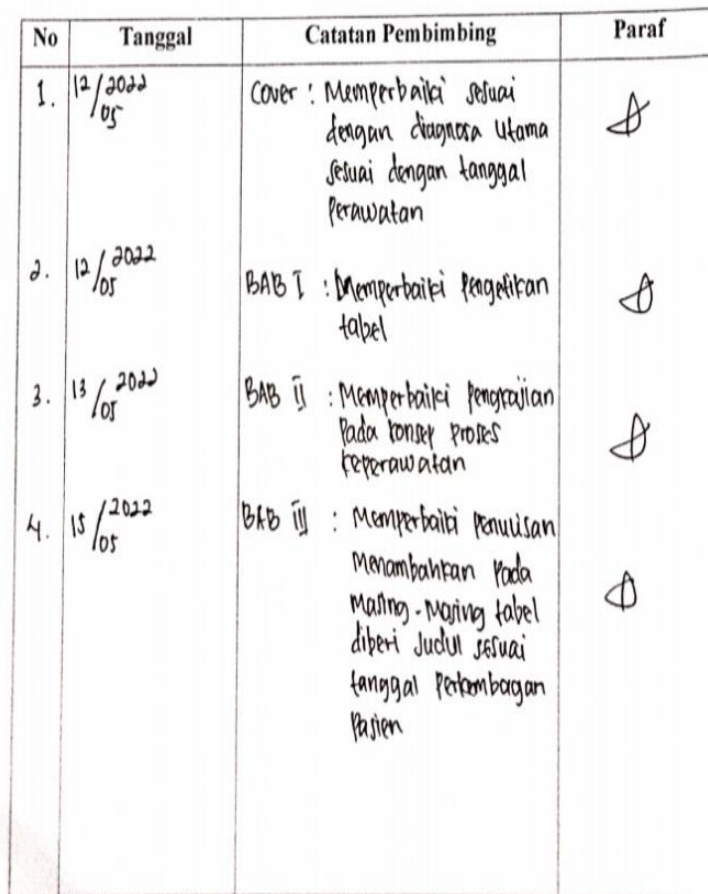 No Tanggal Catatan Pembimbing Paraf
1. 12/05 2022 Cover : Memperbaiki sesuai
dengan diagnosa utama
sesuai dengan tanggal
Perawatan
2. 12/05 2022 BAB I : Memperbaiki Pengetikan
tabel
3. 13/05 2022 BAB II : Memperbaiki Pengkajian
Pada konsep Proses
keperawatan
4. 15/05 2022 BAB III : Memperbaiki Penulisan
Menambahkan Pada
Masing-Masing tabel
diberi Judul sesuai
tanggal Perkembagan
Pasien